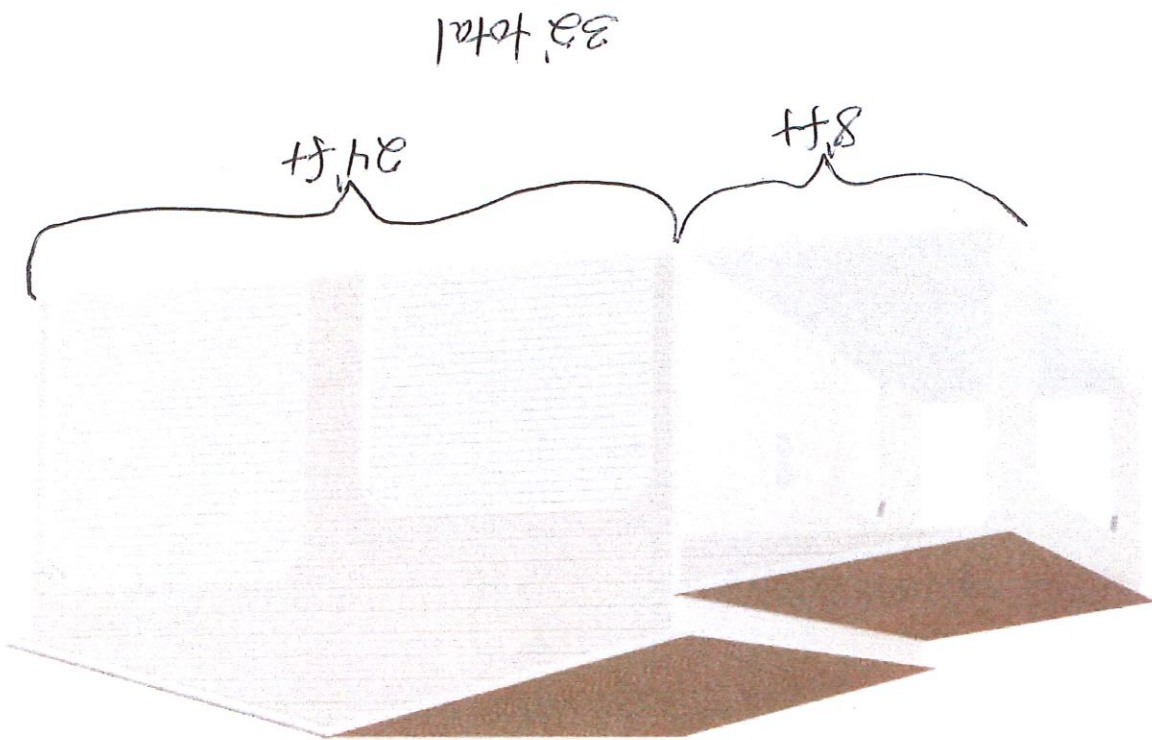 8 ft
24 ft
32' total